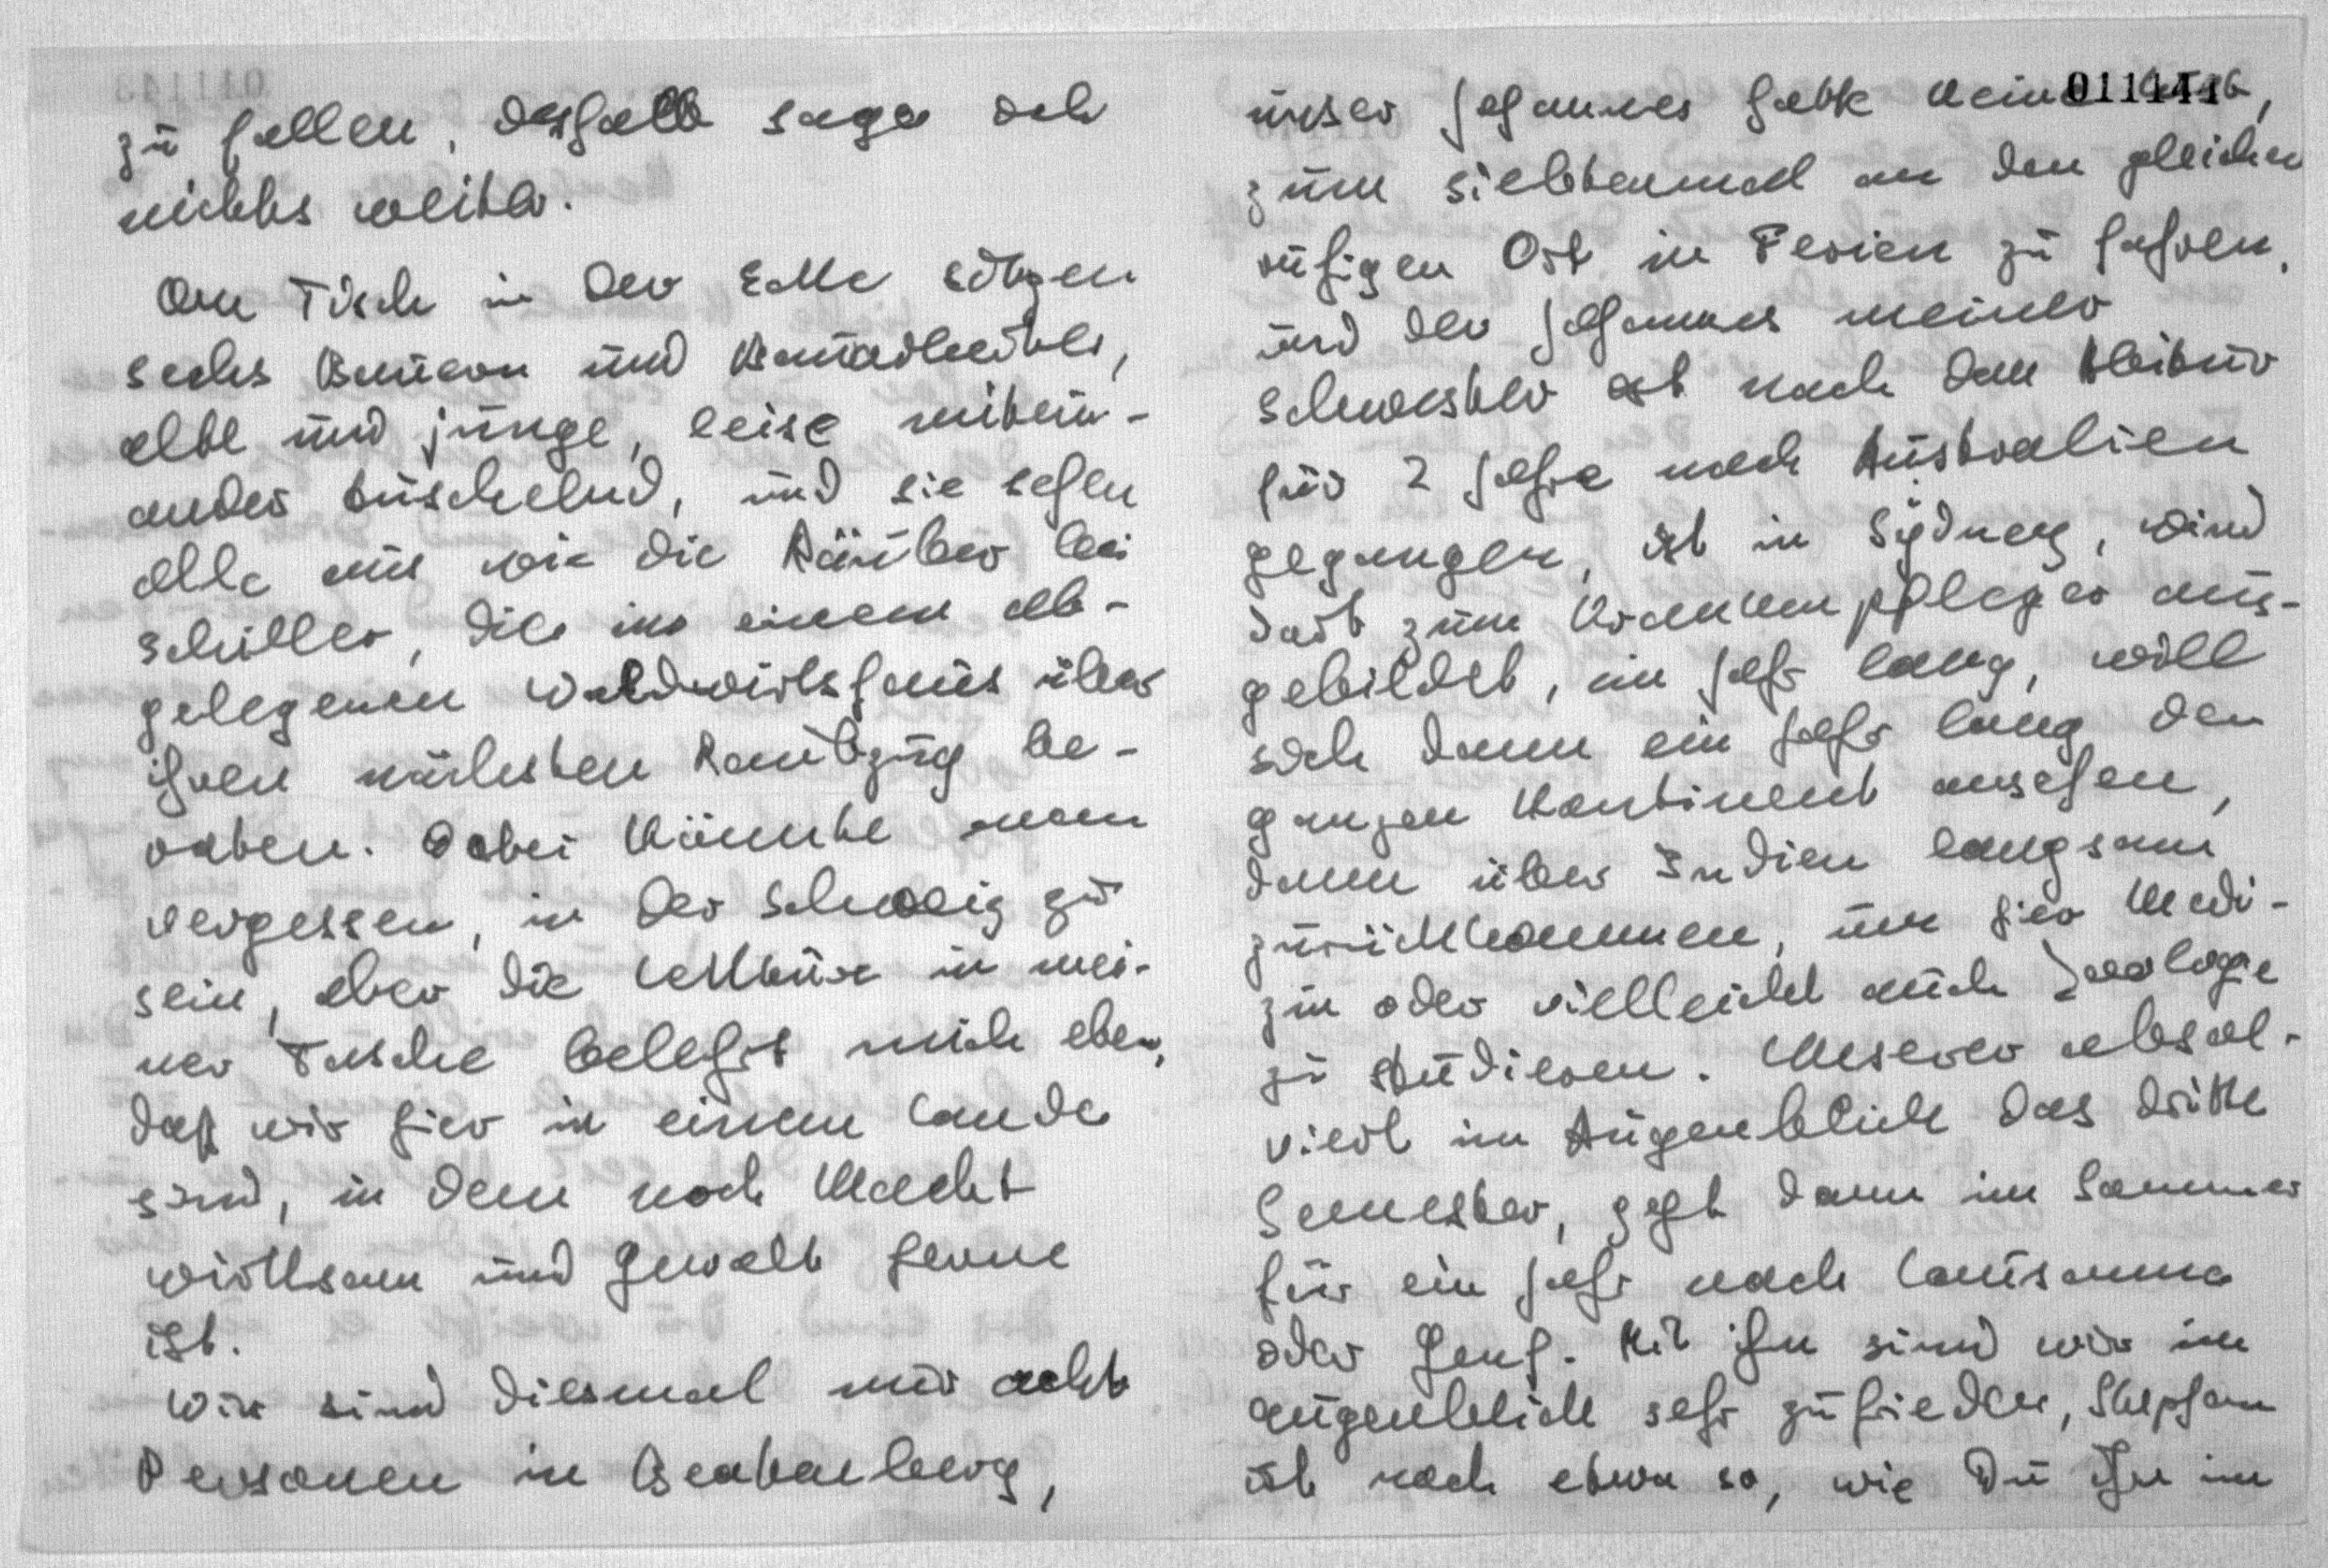 zu fallen, deshalb sage ich
nichts weiter.
Am Tisch in der Ecke sitzen
sechs Bauern und Bauernknechte,
alte und junge, leise mitein-
ander tuschelnd, und sie sehen
alle aus wie die Räuber bei
Schiller, die in einem ab-
gelegenen Waldwirtshaus über
ihren nächsten Raubzug be-
raten. Dabei könnte man
vergessen, in der Schweiz zu
sein, aber die Lektüre in mei-
ner Tasche belehrt mich eben,
daß wir hier in einem Lande
sind, in dem noch Macht
wirksam und Gewalt ferne
ist.
Wir sind diesmal nur acht
Personen in Beatenberg,
011144
unser Johannes hatte keine Lust,
zum siebtenmal an den gleichen
ruhigen Ort in Ferien zu fahren,
und der Johannes meiner
Schwester ist nach dem Abitur
für 2 Jahre nach Australien
gegangen, ist in Sydney, wird
dort zum Krankenpfleger aus-
gebildet, ein Jahr lang, will
sich dann ein Jahr lang den
ganzen Kontinent ansehen,
dann über Indien langsam
zurückkommen, um hier Medi-
zin oder vielleicht auch Zoologie
zu studieren. Unserer absol-
viert im Augenblick das dritte
Semester, geht dann im Sommer
für ein Jahr nach Lausanne
oder Genf. Mit ihm sind wir im
Augenblick sehr zufrieden, Stephan
ist noch etwa so, wie Du ihn im